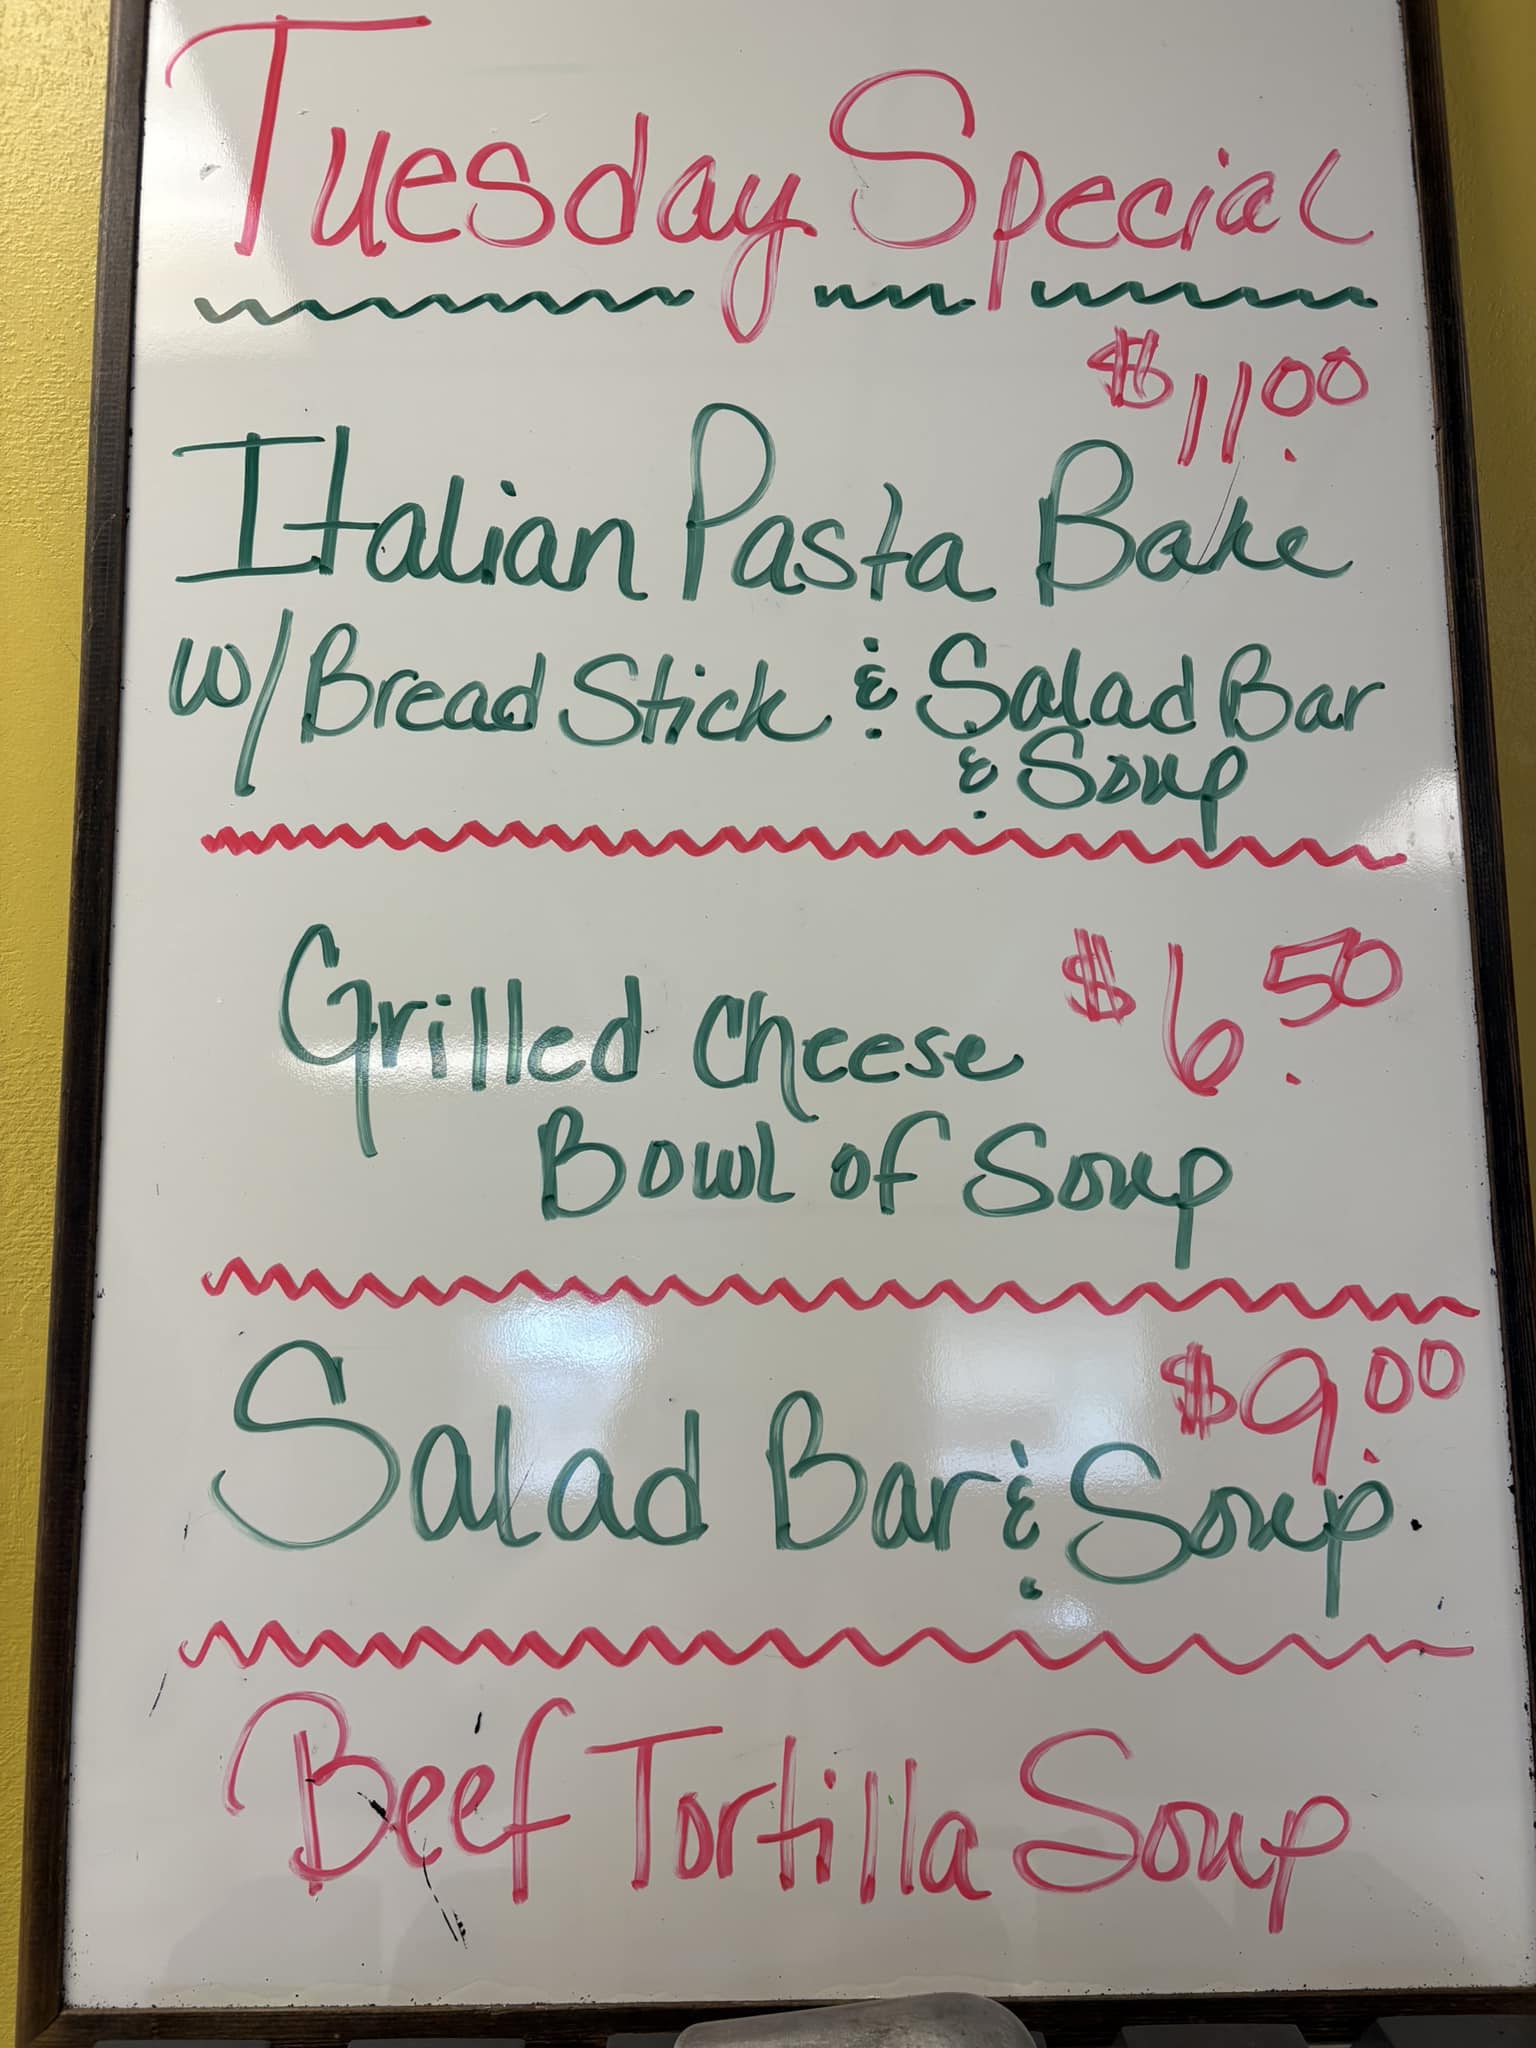 Tuesday Special
$11.00
Italian Pasta Bake
w/ Bread Stick & Salad Bar
& Soup
Grilled Cheese $6.50
Bowl of Soup
$9.00
Salad Bar & Soup
Beef Tortilla Soup